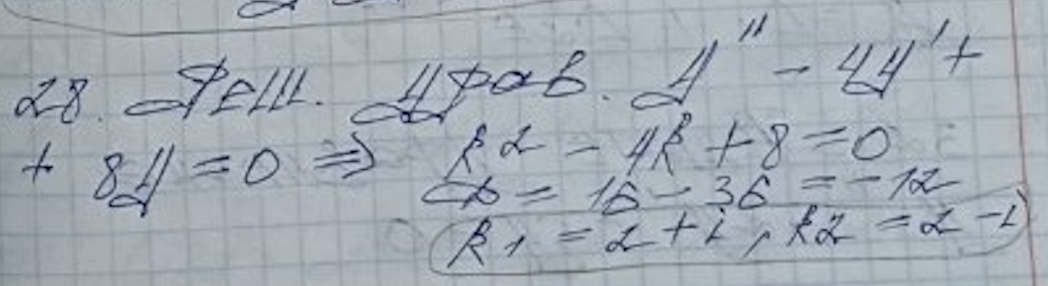 28. Реш. Урав. y'' - 4y' +
+ 8y = 0 ⇒ k2 - 4k + 8 = 0
D = 16 - 36 = -12
k1 = 2 + i, k2 = 2 - i